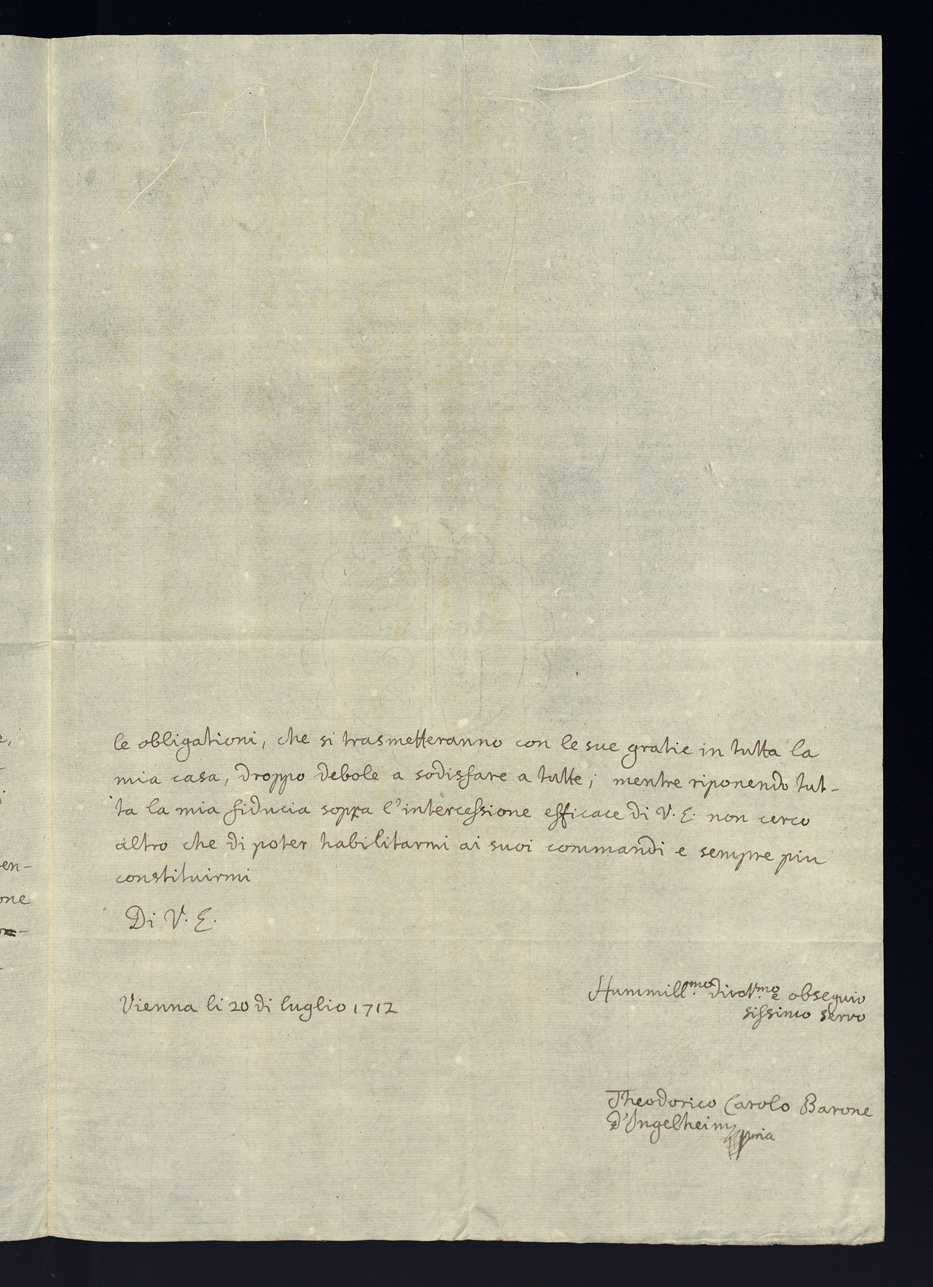 le obligationi, che si trasmetteranno con le sue gratie in tutta la
mia casa, droppo debole a sodisfare a tutte; mentre riponendo tut-
ta la mia fiducia sopra l'intercessione efficace di V. E. non cerco
altro che di poter habilitarmi ai suoi commandi e sempre piu
constituirmi
Di V. E.
Vienna li 20 di luglio 1712
Hummill.mo divot.mo e obsequio
sissimo servo
Theodorico Carolo Barone
d'Ingelheim mpria
e,
en-
one